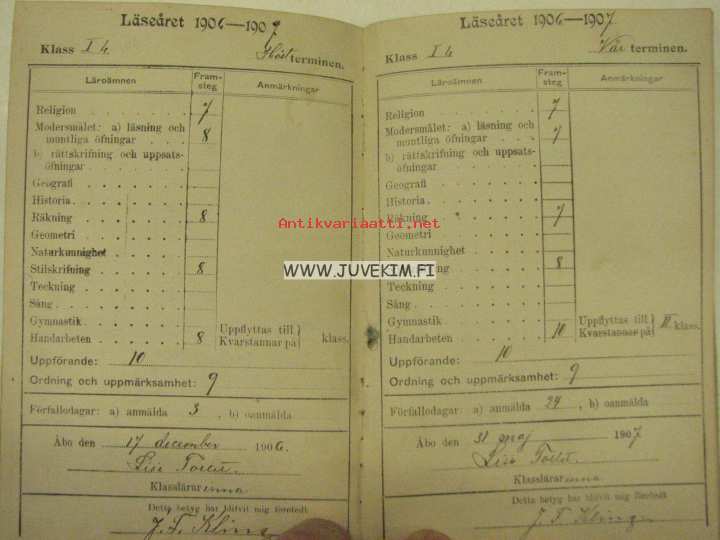 Läseåret 1906—1907
Klass I b Höst terminen.
Läroämnen Fram-steg Anmärkningar
Religion 7
Modersmålet: a) läsning och
muntliga öfningar 8
b) rättskrifning och uppsats-
öfningar
Geografi
Historia
Räkning 8
Geometri
Naturkunnighet
Stilskrifning 8
Teckning
Sång
Gymnastik
Handarbeten 8
Uppflyttas till }
Kvarstannar på } klass.
Uppförande: 10
Ordning och uppmärksamhet: 9
Förfallodagar: a) anmälda 3, b) oanmälda
Åbo den 17 december 1906.
Klasslärarinna
Detta betyg har blifvit mig företedt
J. F. Kling
Läseåret 1906—1907
Klass I b Vår terminen.
Läroämnen Fram-steg Anmärkningar
Religion 7
Modersmålet: a) läsning och
muntliga öfningar 7
b) rättskrifning och uppsats-
öfningar
Geografi
Historia
Räkning 7
Geometri
Naturkunnighet
8
Teckning
Sång
Gymnastik
Handarbeten 10
Uppflyttas till }
Kvarstannar på } II klass.
Uppförande: 10
Ordning och uppmärksamhet: 9
Förfallodagar: a) anmälda 24, b) oanmälda
Åbo den 31 maj 1907
Klasslärarinna
Detta betyg har blifvit mig företedt
J. F. Kling
Antikvariaatti.net
WWW.JUVEKIM.FI